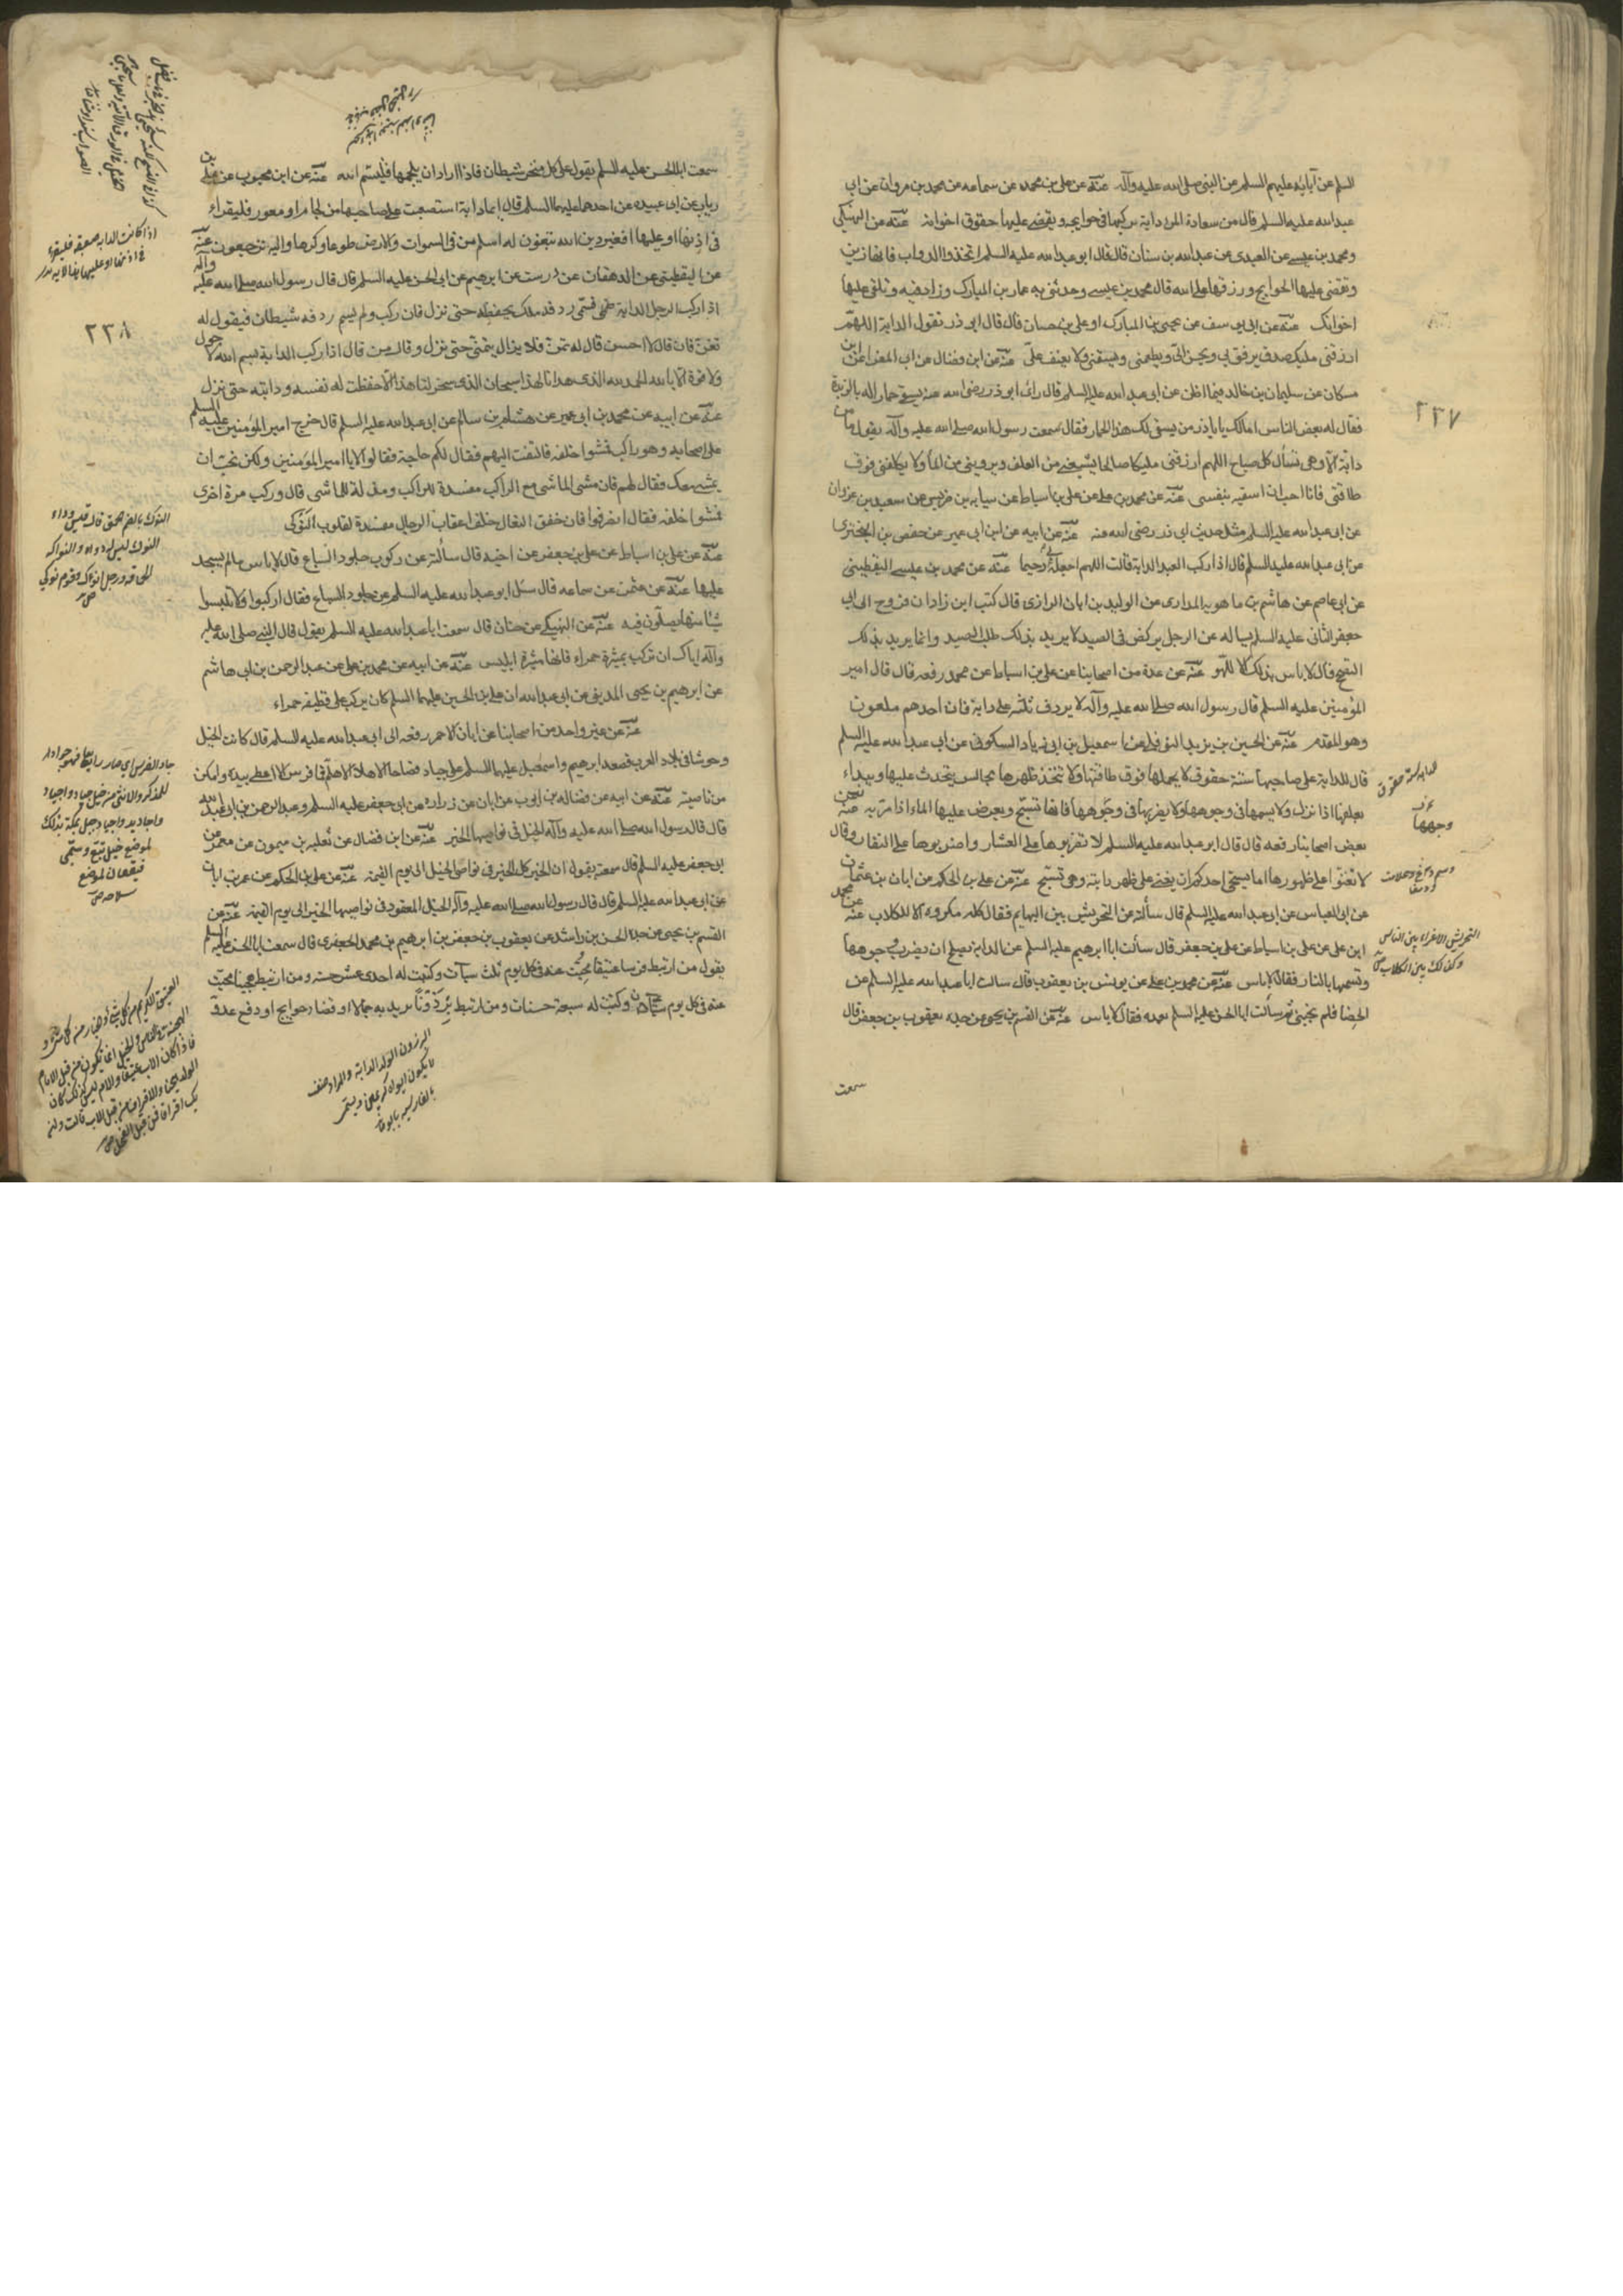 السلم عن آبائه عليهم السلم عن النبى صلى الله عليه وآله عنه عن على بن محمد عن سماعه عن محمد بن مروان عن ابى
عبد الله عليه السلم قال من سعادة المرء دابة يركبها فى حوايجه ويقضى عليها حقوق اخوانه عنه عن النهيكى
ومحمد بن عيسى عن العبدى عن عبد الله بن سنان قال قال ابو عبد الله عليه السلم اتخذوا الدواب فانها زين
وتقضى عليها الحوايج ورزقها على الله قال محمد بن عيسى وحدثنى به عمار بن المبارك وزاد فيه وتلقى عليها
اخوانك عنه عن ابى يوسف عن يحيى بن المبارك او على بن حسان قال قال ابو ذر تقول الدابة اللهم
ارزقنى مليك صدق يرفق بى ويحسن الىّ ويطعمنى ويسقينى ولا يعنف علىّ عنه عن ابن فضال عن ابى المغرا عن ابن
مسكان عن سليمان بن خالد فيما اظن عن ابى عبد الله عليه السلم قال رأى ابو ذر رضى الله عنه يسقى حمارا له بالربذة
فقال له بعض الناس امالك يا باذر من يسقى لك هذا الحمار فقال سمعت رسول الله صلى الله عليه وآله يقول ما من
دابة الا وهى تسأل كل صباح اللهم ارزقنى مليكا صالحا يشبعنى من العلف ويروينى من الماء ولا يكلفنى فوق
طاقتى فانا احب ان اسقيه بنفسى عنه عن محمد بن على عن على بن اسباط عن سيابه بن ضريس عن سعيد بن غزوان
عن ابى عبد الله عليه السلم مثل حديث ابى ذر رضى الله عنه عنه عن ابيه عن ابن ابى عمير عن حفص بن البخترى
عن ابى عبد الله عليه السلم قال اذا ركب العبد الدابة قالت اللهم اجعله بى رحيما عنه عن محمد بن عيسى اليقطينى
عن ابى عاصم عن هاشم بن ماهويه المدارى عن الوليد بن ابان الرازى قال كتب ابن زادان فروخ الى ابى
جعفر الثانى عليه السلم يساله عن الرجل يركض فى الصيد لا يريد بذلك طلب الصيد وانما يريد بذلك
التصحح قال لا باس بذلك الا للهو عنه عن عدة من اصحابنا عن على بن اسباط عن محمد رفعه قال قال امير
المؤمنين عليه السلم قال رسول الله صلى الله عليه وآله لا يردف ثلثة على دابة فان احدهم ملعون
وهو المقدم عنه عن الحسين بن يزيد النوفلى عن اسمعيل بن ابى زياد السكونى عن ابى عبد الله عليه السلم
قال للدابة على صاحبها ستة حقوق لا يحملها فوق طاقتها ولا تتخذ ظهرها مجالس يتحدث عليها ويبداء
بعلفها اذا نزل ولا يسمها فى وجوهها ولا يضربها فى وجوهها فانها تسبح ويعرض عليها الماء اذا مر به عنه عن
بعض اصحابنا رفعه قال قال ابو عبد الله عليه السلم لا تضربوها على العثار واضربوها على النفار وقال
لا تغنوا على ظهورها اما يستحيى احدكم ان يغنى على ظهر دابته وهى تسبح عنه عن على بن الحكم عن ابان بن عثمان
عن ابى العباس عن ابى عبد الله عليه السلم قال سألته عن التحريش بين البهايم فقال كله مكروه الا الكلاب عنه عن محمد
ابن على عن على بن اسباط عن على بن جعفر قال سألت ابا ابرهيم عليه السلم عن الدابة يصلح ان يضرب وجوهها
وتسمها بالنار فقال لا باس عنه عن محمد بن على عن يونس بن يعقوب قال سالت ابا عبد الله عليه السلم عن
الخصا فلم يجبنى ثم سألت ابا الحسن عليه السلم بعده فقال لا باس عنه عن القسم بن يحيى عن جده يعقوب بن جعفر قال
سمعت
٢٣٧
للدابة ستة حقوق
وجهها
التحريش الاغراء بين الناس
وكذلك بين الكلاب
سمعت ابا الحسن عليه السلم يقول على كل منخر شيطان فاذا اراد ان يلجمها فليسم الله عنه عن ابن محبوب عن على بن
رياب عن ابى عبيده عن احدهما عليهما السلم قال ايما دابة استصعبت على صاحبها من لجام او نفور فليقراء
فى اذنها او عليها افغير دين الله تبغون له اسلم من فى السموات والارض طوعا وكرها واليه ترجعون عنه
عن اليقطينى عن الدهقان عن درست عن ابرهيم عن ابى الحسن عليه السلم قال قال رسول الله صلى الله عليه وآله
اذا ركب الرجل الدابة فسمى ردفه ملك يحفظه حتى نزل فان ركب ولم يسم ردفه شيطان فيقول له
تغن فان قال لا احسن قال له تمن فلا يزال يتمنى حتى نزل وقال من قال اذا ركب الدابة بسم الله لا حول
ولا قوة الا بالله الحمد لله الذى هدانا لهذا سبحان الذى سخر لنا هذا الا حفظت له نفسه ودابته حتى نزل
عنه عن ابيه عن محمد بن ابى عمير عن هشام بن سالم عن ابى عبد الله عليه السلم قال خرج امير المؤمنين عليه السلم
على اصحابه وهو راكب فمشوا خلفه فالتفت اليهم فقال لكم حاجة فقالوا لا يا امير المؤمنين ولكن نحب ان
نمشى معك فقال لهم فان مشى الماشى مع الراكب مفسدة للراكب ومذلة للماشى قال وركب مرة اخرى
فمشوا خلفه فقال انصرفوا فان خفق النعال خلف اعقاب الرجال مفسدة لقلوب النوكى
عنه عن على بن اسباط عن على بن جعفر عن اخيه قال سألته عن ركوب جلود السباع قال لا باس مالم يسجد
عليها عنه عن عثمن عن سماعه قال سئل ابو عبد الله عليه السلم عن جلود السباع فقال اركبوا ولا تلبسوا
شيئا منها تصلون فيه عنه عن النهيكى عن حنان قال سمعت ابا عبد الله عليه السلم يقول قال النبى صلى الله عليه
وآله اياك ان تركب بميثرة حمراء فانها ميثرة ابليس عنه عن ابيه عن محمد بن على عن عبد الرحمن بن ابى هاشم
عن ابرهيم بن يحيى المدينى عن ابى عبد الله ان على بن الحسين عليهما السلم كان يركب على قطيفه حمراء
عنه عن غير واحد من اصحابنا عن ابان الاحمر رفعه الى ابى عبد الله عليه السلم قال كانت الخيل
وحوشا فى بلاد العرب فصعد ابرهيم واسمعيل عليهما السلم على جياد فصاحا الا هلا الا هلم فما فرس الا اعطى بيده وامكن
من ناصيته عنه عن ابيه عن فضاله بن ايوب عن ابان عن زراره عن ابى جعفر عليه السلم وعبد الرحمن بن ابى عبد الله
قال قال رسول الله صلى الله عليه وآله الخيل فى نواصيها الخير عنه عن ابن فضال عن ثعلبه بن ميمون عن معمر عن
ابى جعفر عليه السلم قال سمعته يقول ان الخير كل الخير فى نواصى الخيل الى يوم القيمة عنه عن على بن الحكم عن عمر بن ابان
عن ابى عبد الله عليه السلم قال قال رسول الله صلى الله عليه وآله الخيل المعقود فى نواصيها الخير الى يوم القيمة عنه عن
القسم بن يحيى عن جده الحسن بن راشد عن يعقوب بن جعفر بن ابرهيم بن محمد الجعفرى قال سمعت ابا الحسن عليه السلم
يقول من ارتبط فرسا عتيقا محيت عنه فى كل يوم ثلث سيئات وكتبت له احدى عشر حسنه ومن ارتبط هجينا محيت
عنه فى كل يوم سيئتان وكتبت له سبعة حسنات ومن ارتبط برذونا يريد به جمالا او قضاء حوايج او دفع عدو
اذا كانت الدابه صعبة فليقراء
فى اذنها او عليها
٢٣٨
النوك بالضم الحمق قال قيس وداء
النوك ليس له دواء والنواكه
الحماقه ورجل انوك وقوم نوكى
جاد الفرس اى صار رايعا فهو جواد
للذكر والانثى من خيل جياد واجياد
واجاويد واجياد جبل بمكة بذلك
لموضع خيل تبع وسمى
قيقعان لموضع
سلاحه
البرذون الدابة والمراد صنف